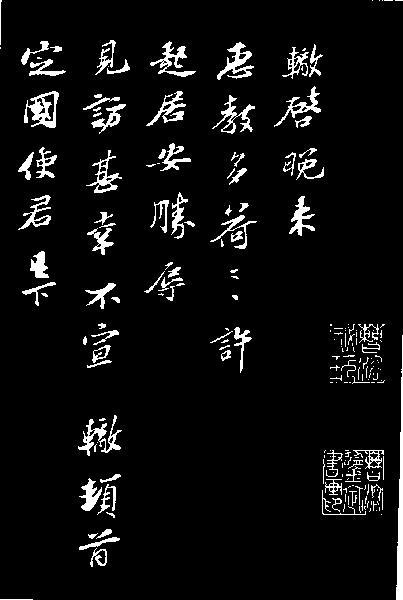 轍啓晚来
惠教多荷〻許
起居安勝辱
見訪甚幸不宣 轍頓首
定國使君足下